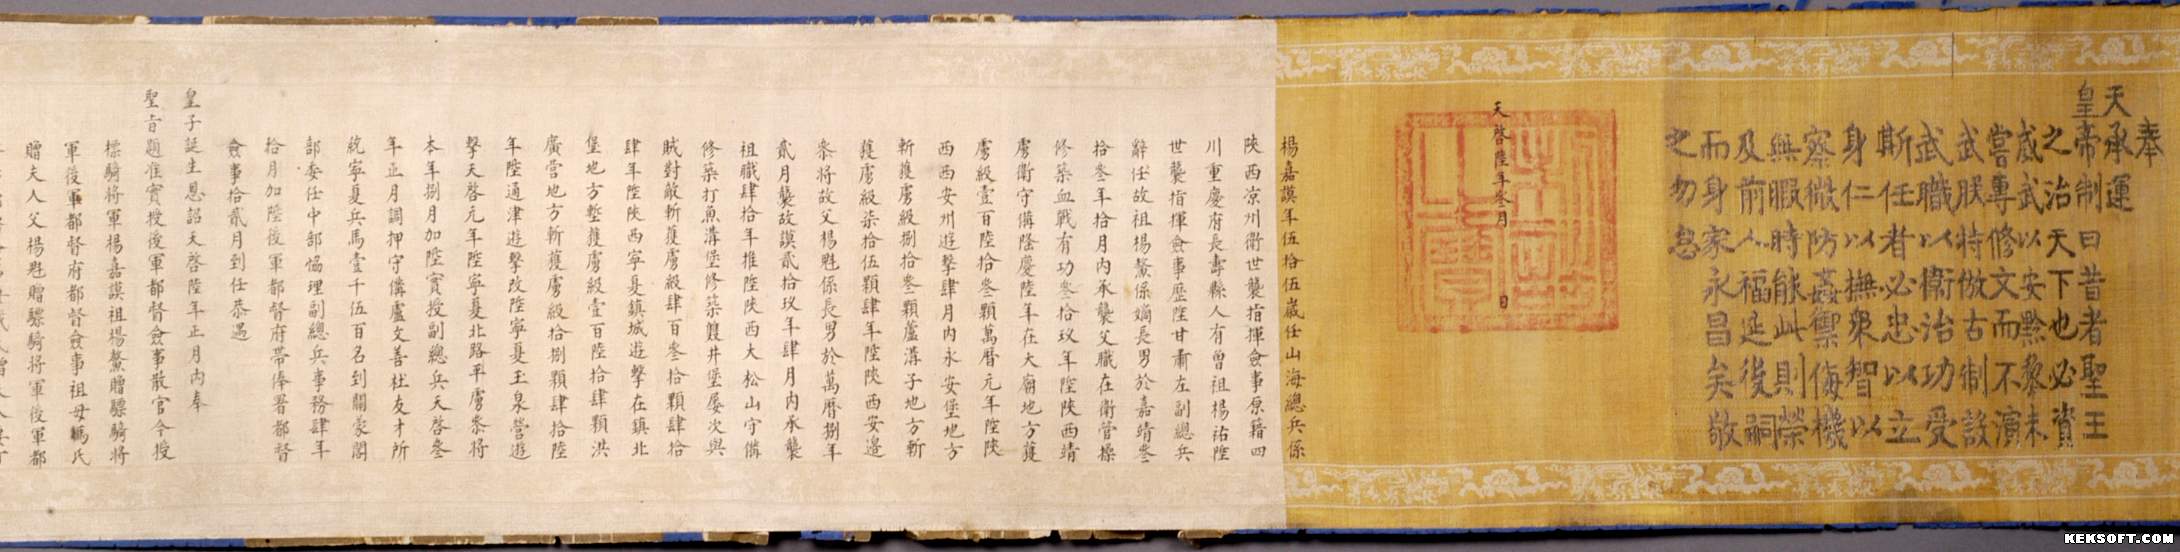 奉
天承運
皇帝制曰昔者聖王
之治天下也必資
威武以安黔黎未
嘗專修文而不演
武朕特倣古制設
武職以衛治功受
斯任者必忠以立
身仁以撫衆智以
察微防姦禦侮機
無暇時能此則榮
及前人福延後嗣
而身家永昌矣敬
之勿怠
天啓陸年叁月 日
楊嘉謨年伍拾伍歲任山海總兵係
陝西凉州衛世襲指揮僉事原籍四
川重慶府長壽縣人有曾祖楊祐陞
世襲指揮僉事歷陞甘肅左副總兵
辭任故祖楊鰲係嫡長男於嘉靖叁
拾叁年拾月內承襲父職在衛管操
修築血戰有功叁拾玖年陞陝西靖
虜衛守備隆慶陸年在大廟地方獲
虜級壹百陸拾叁顆萬曆元年陞陝
西西安州遊擊肆月內永安堡地方
斬獲虜級捌拾叁顆蘆溝子地方斬
獲虜級柒拾伍顆肆年陞陝西安邊
叅將故父楊魁係長男於萬曆捌年
貳月襲故謨貳拾玖年肆月內承襲
祖職肆拾年推陞陝西大松山守備
修築打魚溝堡修築雙井堡屢次與
賊對敵斬獲虜級肆百叁拾顆肆拾
肆年陞陝西寧夏鎮城遊擊在鎮北
堡地方塹獲虜級壹百陸拾肆顆洪
廣營地方斬獲虜級拾捌顆肆拾陸
年陞通津遊擊改陞寧夏玉泉營遊
擊天啓元年陞寧夏北路平虜叅將
本年捌月加陞實授副總兵天啓叁
年正月調押守備盧文善杜友才所
統寧夏兵馬壹千伍百名到關蒙閣
部委任中部協理副總兵事務肆年
拾月加陞後軍都督府帶俸署都督
僉事拾貳月到任恭遇
皇子誕生恩詔天啓陸年正月內奉
聖旨題准實授後軍都督僉事散官今授
驃騎將軍楊嘉謨祖楊鰲贈驃騎將
軍後軍都督府都督僉事祖母馮氏
贈夫人父楊魁贈驃騎將軍後軍都
KEKSOFT.COM